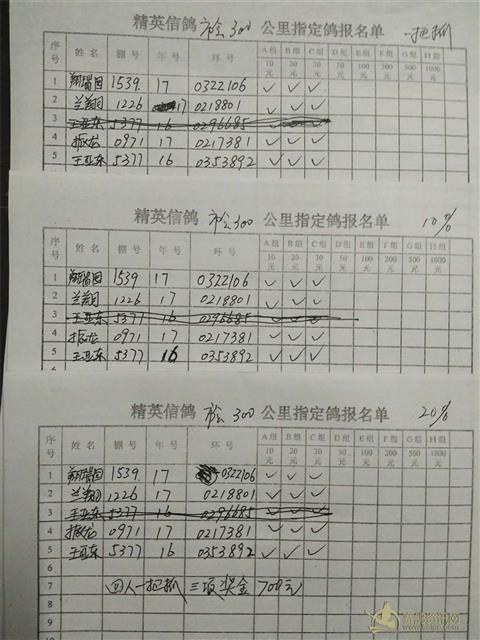 精英信鸽 市会300 公里指定鸽报名单 一把抓
序号 姓名 棚号 年号 环号 A组10元 B组20元 C组30元 D组50元 E组100元 F组200元 G组500元 H组1000元
1 翔瑞园 1539 17 0322106 ✓ ✓ ✓
2 兰翔 1226 17 0218801 ✓ ✓ ✓
3 王亚东 5377 16 0296685 ✓ ✓ ✓
4 振龙 0971 17 0217381 ✓ ✓ ✓
5 王亚东 5377 16 0353892 ✓ ✓ ✓
精英信鸽 市会300 公里指定鸽报名单 10%
序号 姓名 棚号 年号 环号 A组10元 B组20元 C组30元 D组50元 E组100元 F组200元 G组500元 H组1000元
1 翔瑞园 1539 17 0322106 ✓ ✓ ✓
2 兰翔 1226 17 0218801 ✓ ✓ ✓
3 王亚东 5377 16 0296685 ✓ ✓ ✓
4 振龙 0971 17 0217381 ✓ ✓ ✓
5 王亚东 5377 16 0353892 ✓ ✓ ✓
精英信鸽 市会300 公里指定鸽报名单 20%
序号 姓名 棚号 年号 环号 A组10元 B组20元 C组30元 D组50元 E组100元 F组200元 G组500元 H组1000元
1 翔瑞园 1539 17 0322106 ✓ ✓ ✓
2 兰翔 1226 17 0218801 ✓ ✓ ✓
3 王亚东 5377 16 0296685 ✓ ✓ ✓
4 振龙 0971 17 0217381 ✓ ✓ ✓
5 王亚东 5377 16 0353892 ✓ ✓ ✓
6
7 四人一把抓 三项奖金700元
8
9